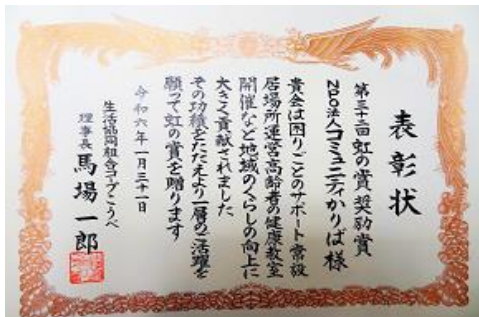 表彰状
第三十二回 虹の賞 奨励賞
NPO法人コミュニティかりば様
貴会は困りごとのサポート常設
居場所運営高齢者の健康教室
開催など地域のくらしの向上に
大きく貢献されました
その功績をたたえより一層のご活躍を
願って虹の賞を贈ります
令和六年一月三十一日
生活協同組合コープこうべ
理事長 馬場一郎